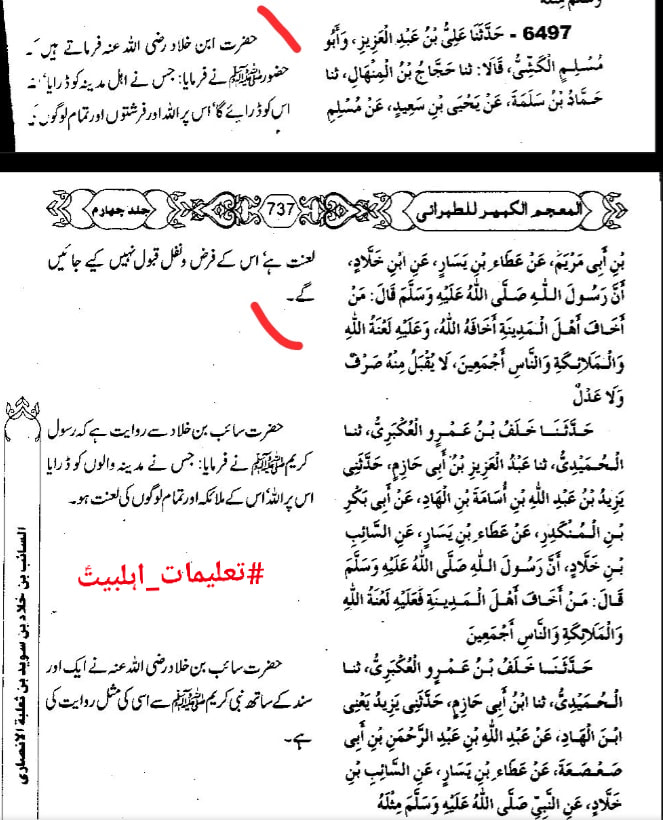 6497 - حَدَّثَنَا عَلِيُّ بْنُ عَبْدِ الْعَزِيزِ، وَأَبُو
مُسْلِمٍ الْكَشِّيُّ، قَالَا: ثنا حَجَّاجُ بْنُ الْمِنْهَالِ، ثنا
حَمَّادُ بْنُ سَلَمَةَ، عَنْ يَحْيَى بْنِ سَعِيدٍ، عَنْ مُسْلِمِ
حضرت ابن خلاد رضی اللہ عنہ فرماتے ہیں
حضور ﷺ نے فرمایا: جس نے اہل مدینہ کو ڈرایا'
اس کو ڈرائے گا' اس پر اللہ اور فرشتوں اور تمام لوگوں
المعجم الكبير للطبرانى 737 جلد چهارم
بْنِ أَبِي مَرْيَمَ، عَنْ عَطَاءِ بْنِ يَسَارٍ، عَنِ ابْنِ خَلَّادٍ،
أَنَّ رَسُولَ اللهِ صَلَّى اللهُ عَلَيْهِ وَسَلَّمَ قَالَ: مَنْ
أَخَافَ أَهْلَ الْمَدِينَةِ أَخَافَهُ اللهُ، وَعَلَيْهِ لَعْنَةُ اللهِ
وَالْمَلَائِكَةِ وَالنَّاسِ أَجْمَعِينَ، لَا يُقْبَلُ مِنْهُ صَرْفٌ
وَلَا عَدْلٌ
لعنت ہے' اس کے فرض و نفل قبول نہیں کیے جائیں
گے۔
حَدَّثَنَا خَلَفُ بْنُ عَمْرٍو الْعُكْبَرِيُّ، ثنا
الْحُمَيْدِيُّ، ثنا عَبْدُ الْعَزِيزِ بْنُ أَبِي حَازِمٍ، حَدَّثَنِي
يَزِيدُ بْنُ عَبْدِ اللهِ بْنِ أُسَامَةَ بْنِ الْهَادِ، عَنْ أَبِي بَكْرِ
بْنِ الْمُنْكَدِرِ، عَنْ عَطَاءِ بْنِ يَسَارٍ، عَنِ السَّائِبِ
بْنِ خَلَّادٍ، أَنَّ رَسُولَ اللهِ صَلَّى اللهُ عَلَيْهِ وَسَلَّمَ
قَالَ: مَنْ أَخَافَ أَهْلَ الْمَدِينَةِ فَعَلَيْهِ لَعْنَةُ اللهِ
وَالْمَلَائِكَةِ وَالنَّاسِ أَجْمَعِينَ
حضرت سائب بن خلاد سے روایت ہے کہ رسول
کریم ﷺ نے فرمایا: جس نے مدینہ والوں کو ڈرایا
اس پر اللہ' اس کے ملائکہ اور تمام لوگوں کی لعنت ہو۔
#تعلیمات_اہلبیتؑ
حَدَّثَنَا خَلَفُ بْنُ عَمْرٍو الْعُكْبَرِيُّ، ثنا
الْحُمَيْدِيُّ، ثنا ابْنُ أَبِي حَازِمٍ، حَدَّثَنِي يَزِيدُ يَعْنِي
ابْنَ الْهَادِ، عَنْ عَبْدِ اللهِ بْنِ عَبْدِ الرَّحْمَنِ بْنِ أَبِي
صَعْصَعَةَ، عَنْ عَطَاءِ بْنِ يَسَارٍ، عَنِ السَّائِبِ بْنِ
خَلَّادٍ، عَنِ النَّبِيِّ صَلَّى اللهُ عَلَيْهِ وَسَلَّمَ مِثْلَهُ
حضرت سائب بن خلاد رضی اللہ عنہ نے ایک اور
سند کے ساتھ نبی کریم ﷺ سے اسی کی مثل روایت کی
ہے۔
السائب بن خلاد بن سويد بن ثعلبة الانصارى